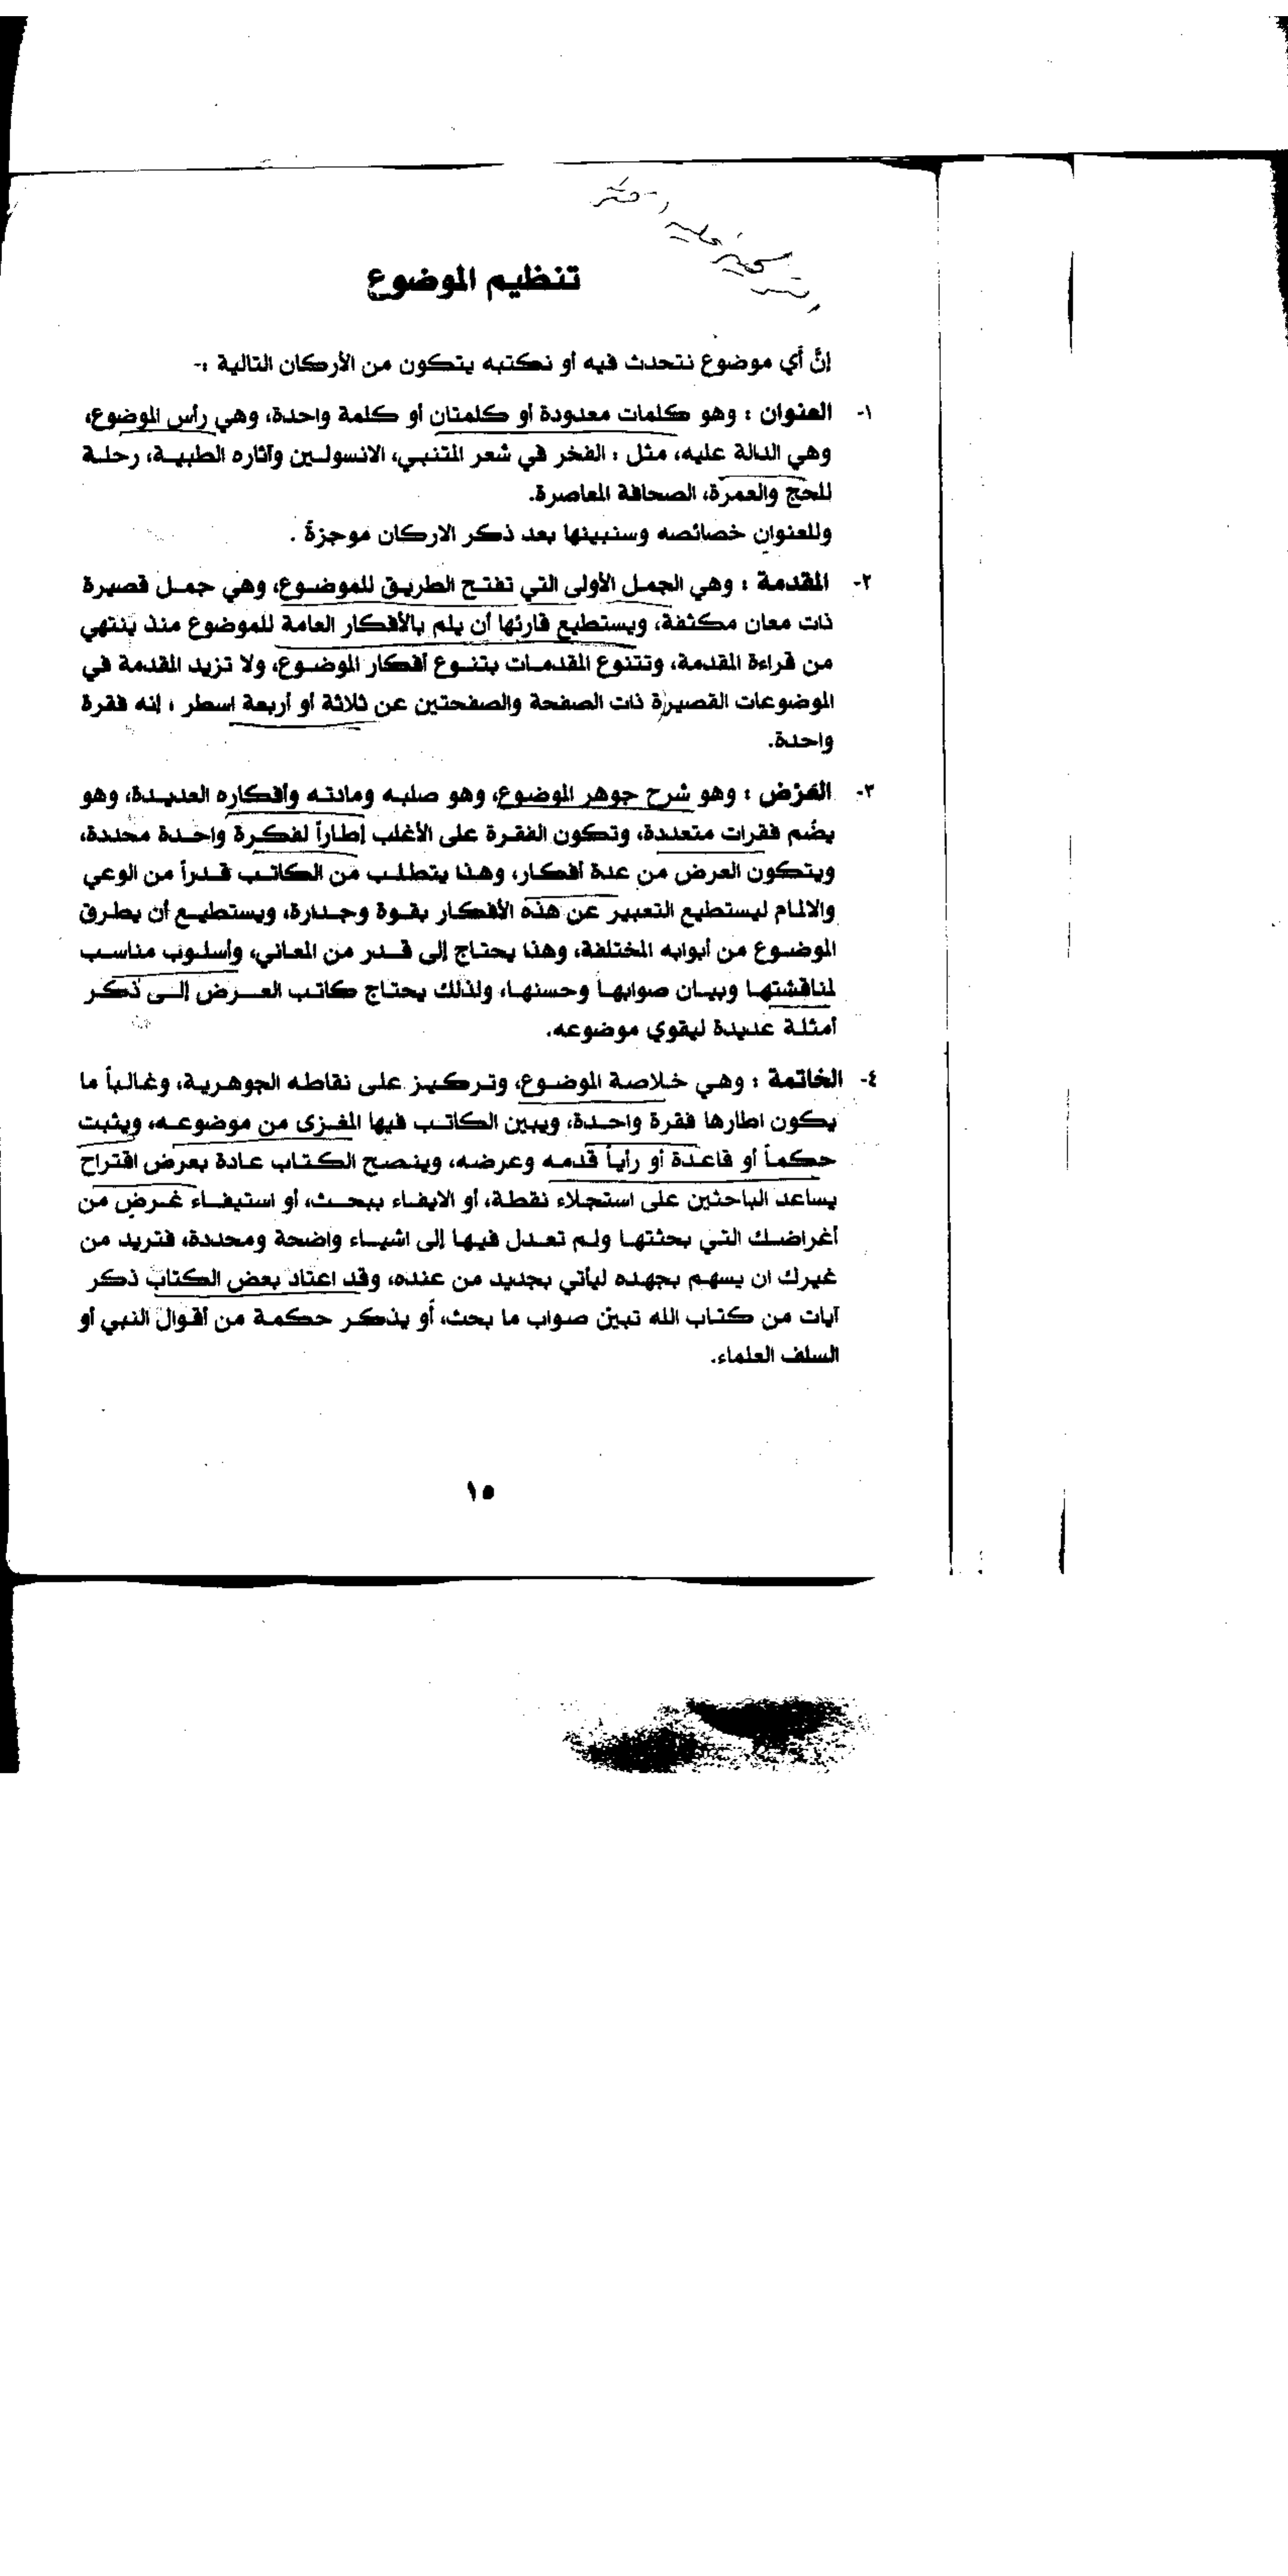 تنظيم الموضوع
إنَّ أي موضوع نتحدث فيه أو نكتبه يتكون من الأركان التالية :-
١- العنوان : وهو كلمات معدودة أو كلمتان أو كلمة واحدة، وهي رأس الموضوع،
وهي الدالة عليه، مثل : الفخر في شعر المتنبي، الانسولين وآثاره الطبية، رحلة
للحج والعمرة، الصحافة المعاصرة.
وللعنوان خصائصه وسنبينها بعد ذكر الاركان موجزةً .
٢- المقدمة : وهي الجمل الأولى التي تفتح الطريق للموضوع، وهي جمل قصيرة
ذات معان مكثفة، ويستطيع قارئها أن يلم بالأفكار العامة للموضوع منذ ينتهي
من قراءة المقدمة، وتتنوع المقدمات بتنوع أفكار الموضوع، ولا تزيد المقدمة في
الموضوعات القصيرة ذات الصفحة والصفحتين عن ثلاثة أو أربعة اسطر ؛ إنه فقرة
واحدة.
٣- العَرْض : وهو شرح جوهر الموضوع، وهو صلبه ومادته وأفكاره العديدة، وهو
يضُم فقرات متعددة، وتكون الفقرة على الأغلب إطاراً لفكرة واحدة محددة،
ويتكون العرض من عدة أفكار، وهذا يتطلب من الكاتب قدراً من الوعي
والالمام ليستطيع التعبير عن هذه الأفكار بقوة وجدارة، ويستطيع أن يطرق
الموضوع من أبوابه المختلفة، وهنا يحتاج إلى قدر من المعاني، وأسلوب مناسب
لمناقشتها وبيان صوابها وحسنها، ولذلك يحتاج كاتب العرض إلى ذكر
أمثلة عديدة ليقوي موضوعه.
٤- الخاتمة : وهي خلاصة الموضوع، وتركيز على نقاطه الجوهرية، وغالباً ما
يكون اطارها فقرة واحدة، ويبين الكاتب فيها المغزى من موضوعه، ويثبت
حكماً أو قاعدة أو رأياً قدمه وعرضه، وينصح الكتاب عادة بعرض اقتراح
يساعد الباحثين على استجلاء نقطة، أو الايفاء ببحث، أو استيفاء غرض من
أغراضك التي بحثتها ولم تعدل فيها إلى اشياء واضحة ومحددة، فتريد من
غيرك ان يسهم بجهده ليأتي بجديد من عنده، وقد اعتاد بعض الكتاب ذكر
آيات من كتاب الله تبين صواب ما بحث، أو يذكر حكمة من أقوال النبي أو
السلف العلماء.
١٥